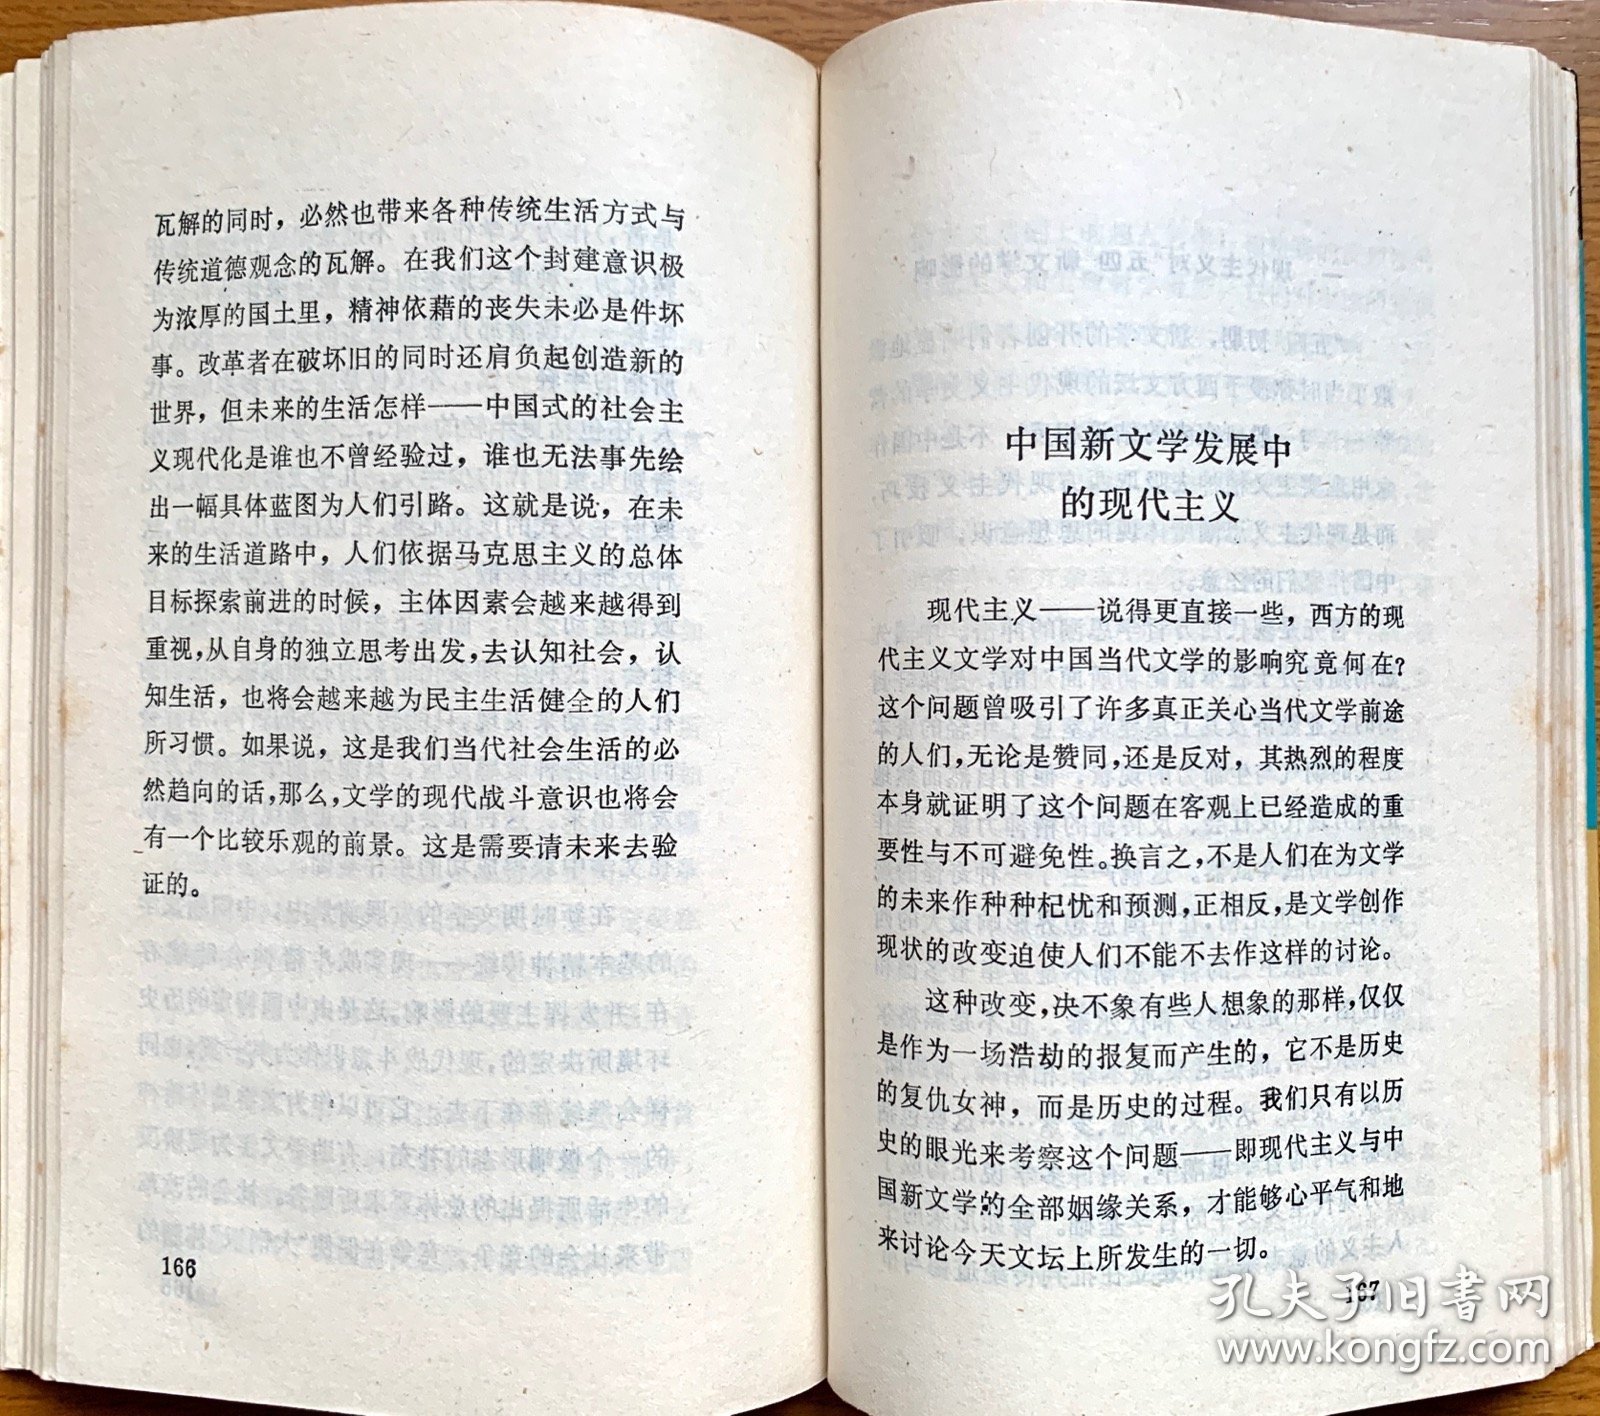 瓦解的同时，必然也带来各种传统生活方式与
传统道德观念的瓦解。在我们这个封建意识极
为浓厚的国土里，精神依藉的丧失未必是件坏
事。改革者在破坏旧的同时还肩负起创造新的
世界，但未来的生活怎样——中国式的社会主
义现代化是谁也不曾经验过，谁也无法事先绘
出一幅具体蓝图为人们引路。这就是说，在未
来的生活道路中，人们依据马克思主义的总体
目标探索前进的时候，主体因素会越来越得到
重视，从自身的独立思考出发，去认知社会，认
知生活，也将会越来越为民主生活健全的人们
所习惯。如果说，这是我们当代社会生活的必
然趋向的话，那么，文学的现代战斗意识也将会
有一个比较乐观的前景。这是需要请未来去验
证的。
166
中国新文学发展中
的现代主义
现代主义——说得更直接一些，西方的现
代主义文学对中国当代文学的影响究竟何在？
这个问题曾吸引了许多真正关心当代文学前途
的人们，无论是赞同，还是反对，其热烈的程度
本身就证明了这个问题在客观上已经造成的重
要性与不可避免性。换言之，不是人们在为文学
的未来作种种杞忧和预测，正相反，是文学创作
现状的改变迫使人们不能不去作这样的讨论。
这种改变，决不象有些人想象的那样，仅仅
是作为一场浩劫的报复而产生的，它不是历史
的复仇女神，而是历史的过程。我们只有以历
史的眼光来考察这个问题——即现代主义与中
国新文学的全部姻缘关系，才能够心平气和地
来讨论今天文坛上所发生的一切。
167
孔夫子旧书网
www.kongfz.com